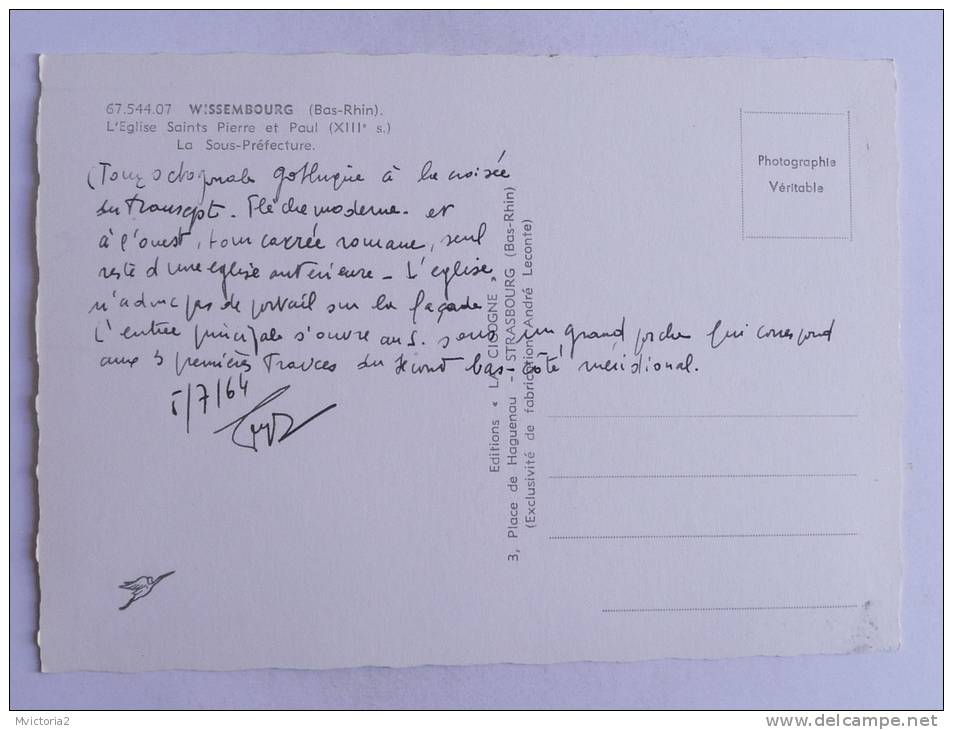 67.544.07 WISSEMBOURG (Bas-Rhin).
L'Eglise Saints Pierre et Paul (XIIIe s.)
La Sous-Préfecture.
Photographie
Véritable
(Tour octogonale gothique à la croisée
du transept. Flèche moderne. et
à l'ouest, tour carrée romane, seul
reste d'une eglise antérieure - L'eglise
n'a pas de portail sur la façade
L'entrée principale s'ouvre au S. sous un grand porche qui correspond
aux 3 premières travées du second bas-côté méridional.
5/7/64
Editions « LA CIGOGNE »
3, Place de Haguenau - STRASBOURG (Bas-Rhin)
(Exclusivité de fabrication André Leconte)
Mvictoria2
delcampe.net